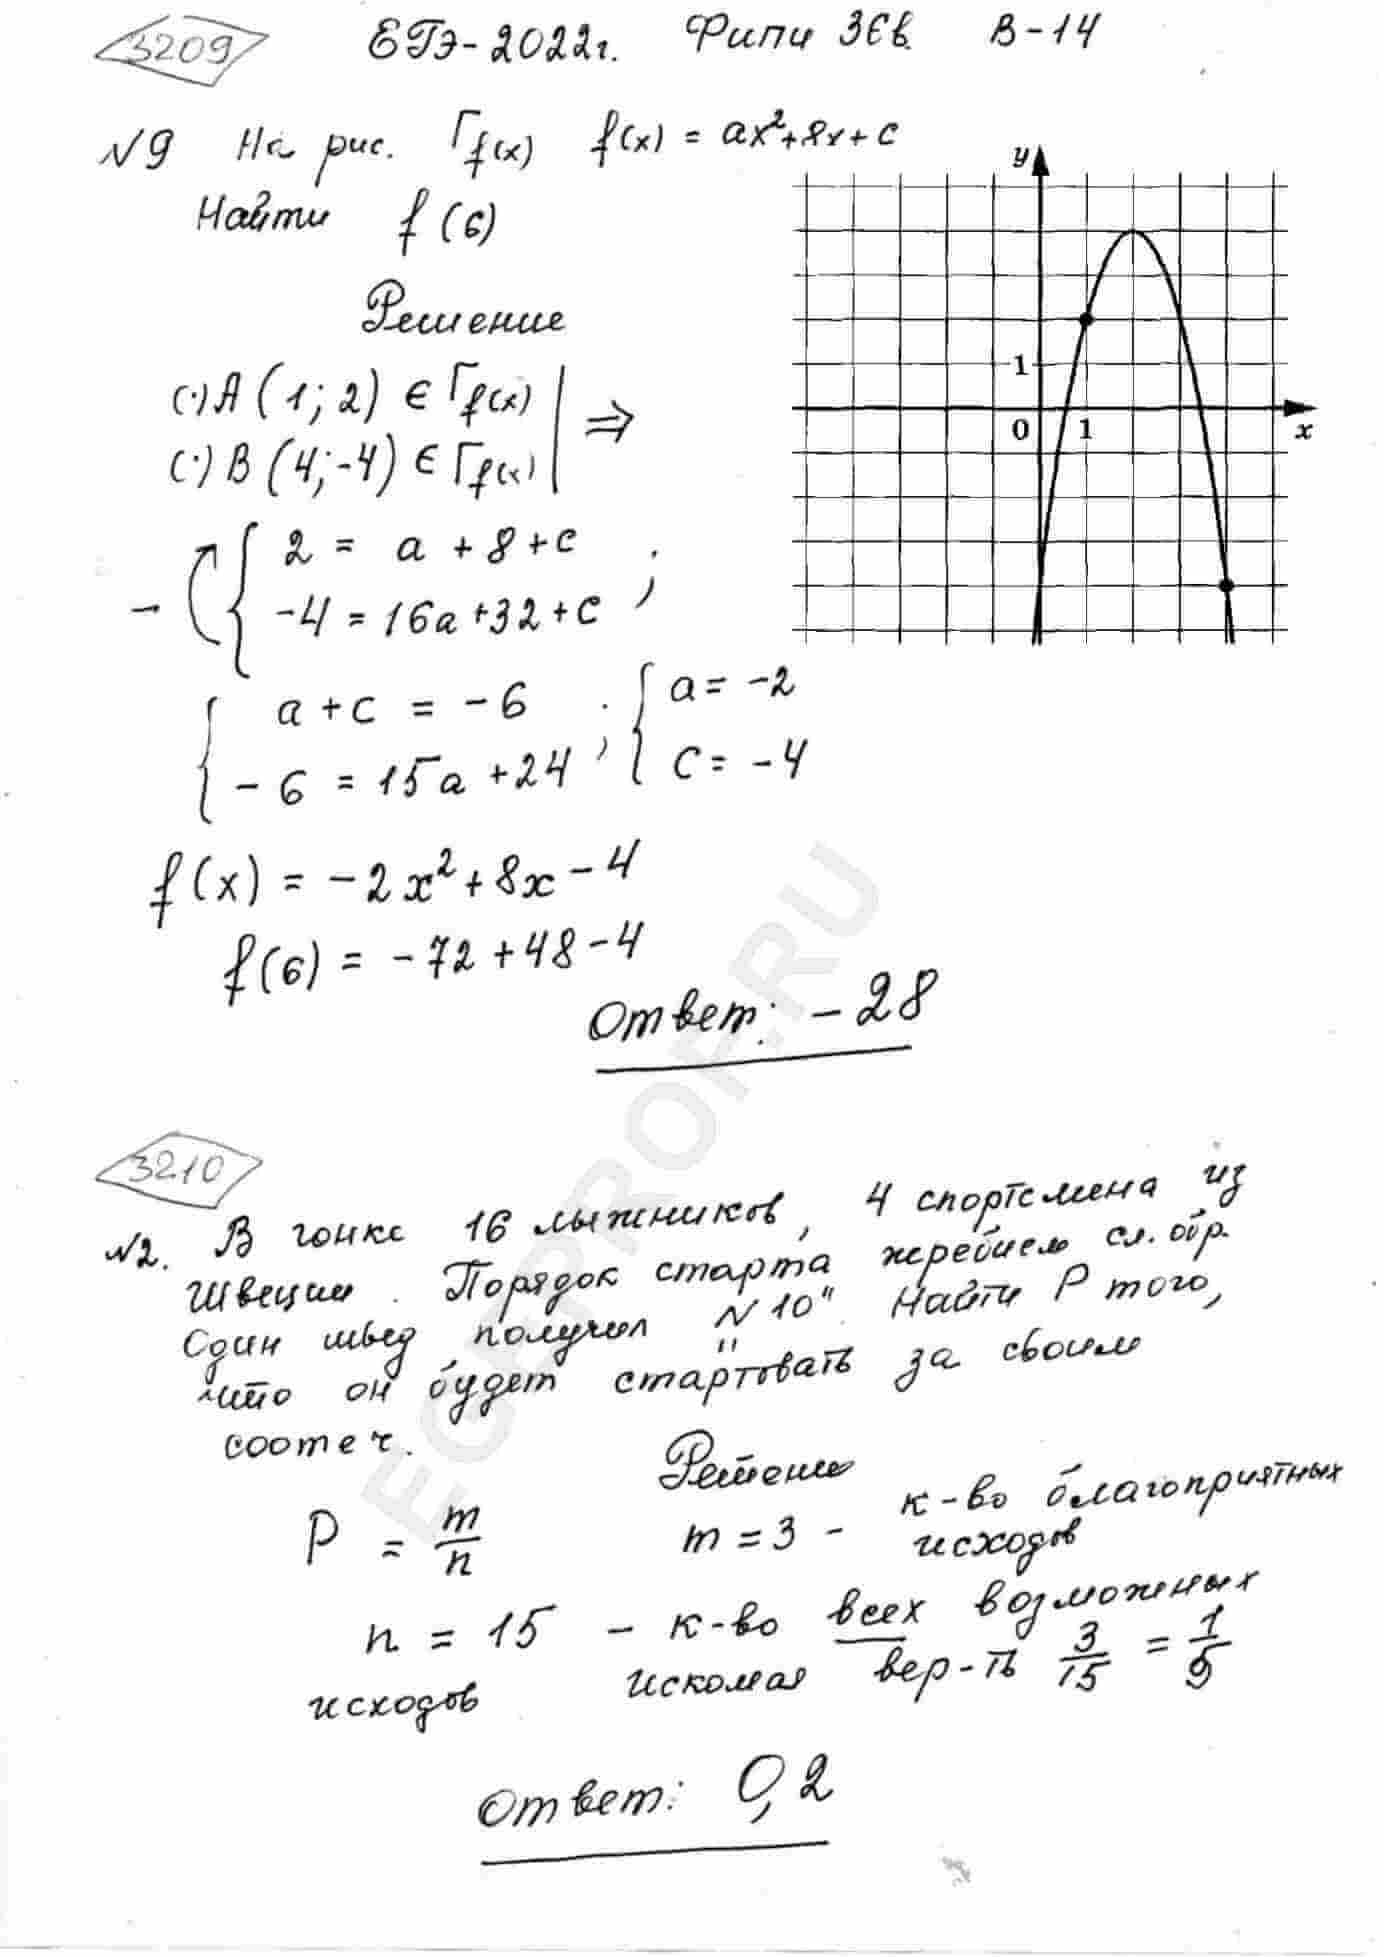 3209 ЕГЭ-2022г. Фипи 36в. В-14
№9 На рис. Гf(x) f(x) = ax²+8x+c
Найти f(6)
Решение
(·)A(1;2) ∈ Гf(x)
(·)B(4;-4) ∈ Гf(x) ⇒
- { 2 = a + 8 + c
-4 = 16a+32+c ;
{ a+c = -6 ; { a = -2
-6 = 15a+24 c = -4
f(x) = -2x²+8x-4
f(6) = -72+48-4
Ответ: -28
y
1
0 1 x
3210
№2. В гонке 16 лыжников, 4 спортсмена из
Швеции. Порядок старта жребием сл. обр.
Один швед получил "№10". Найти P того,
что он будет стартовать за своим
соотеч.
Решение
P = m/n m = 3 - к-во благоприятных
исходов
n = 15 - к-во всех возможных
исходов искомая вер-ть 3/15 = 1/5
Ответ: 0,2
EGEPROF.RU